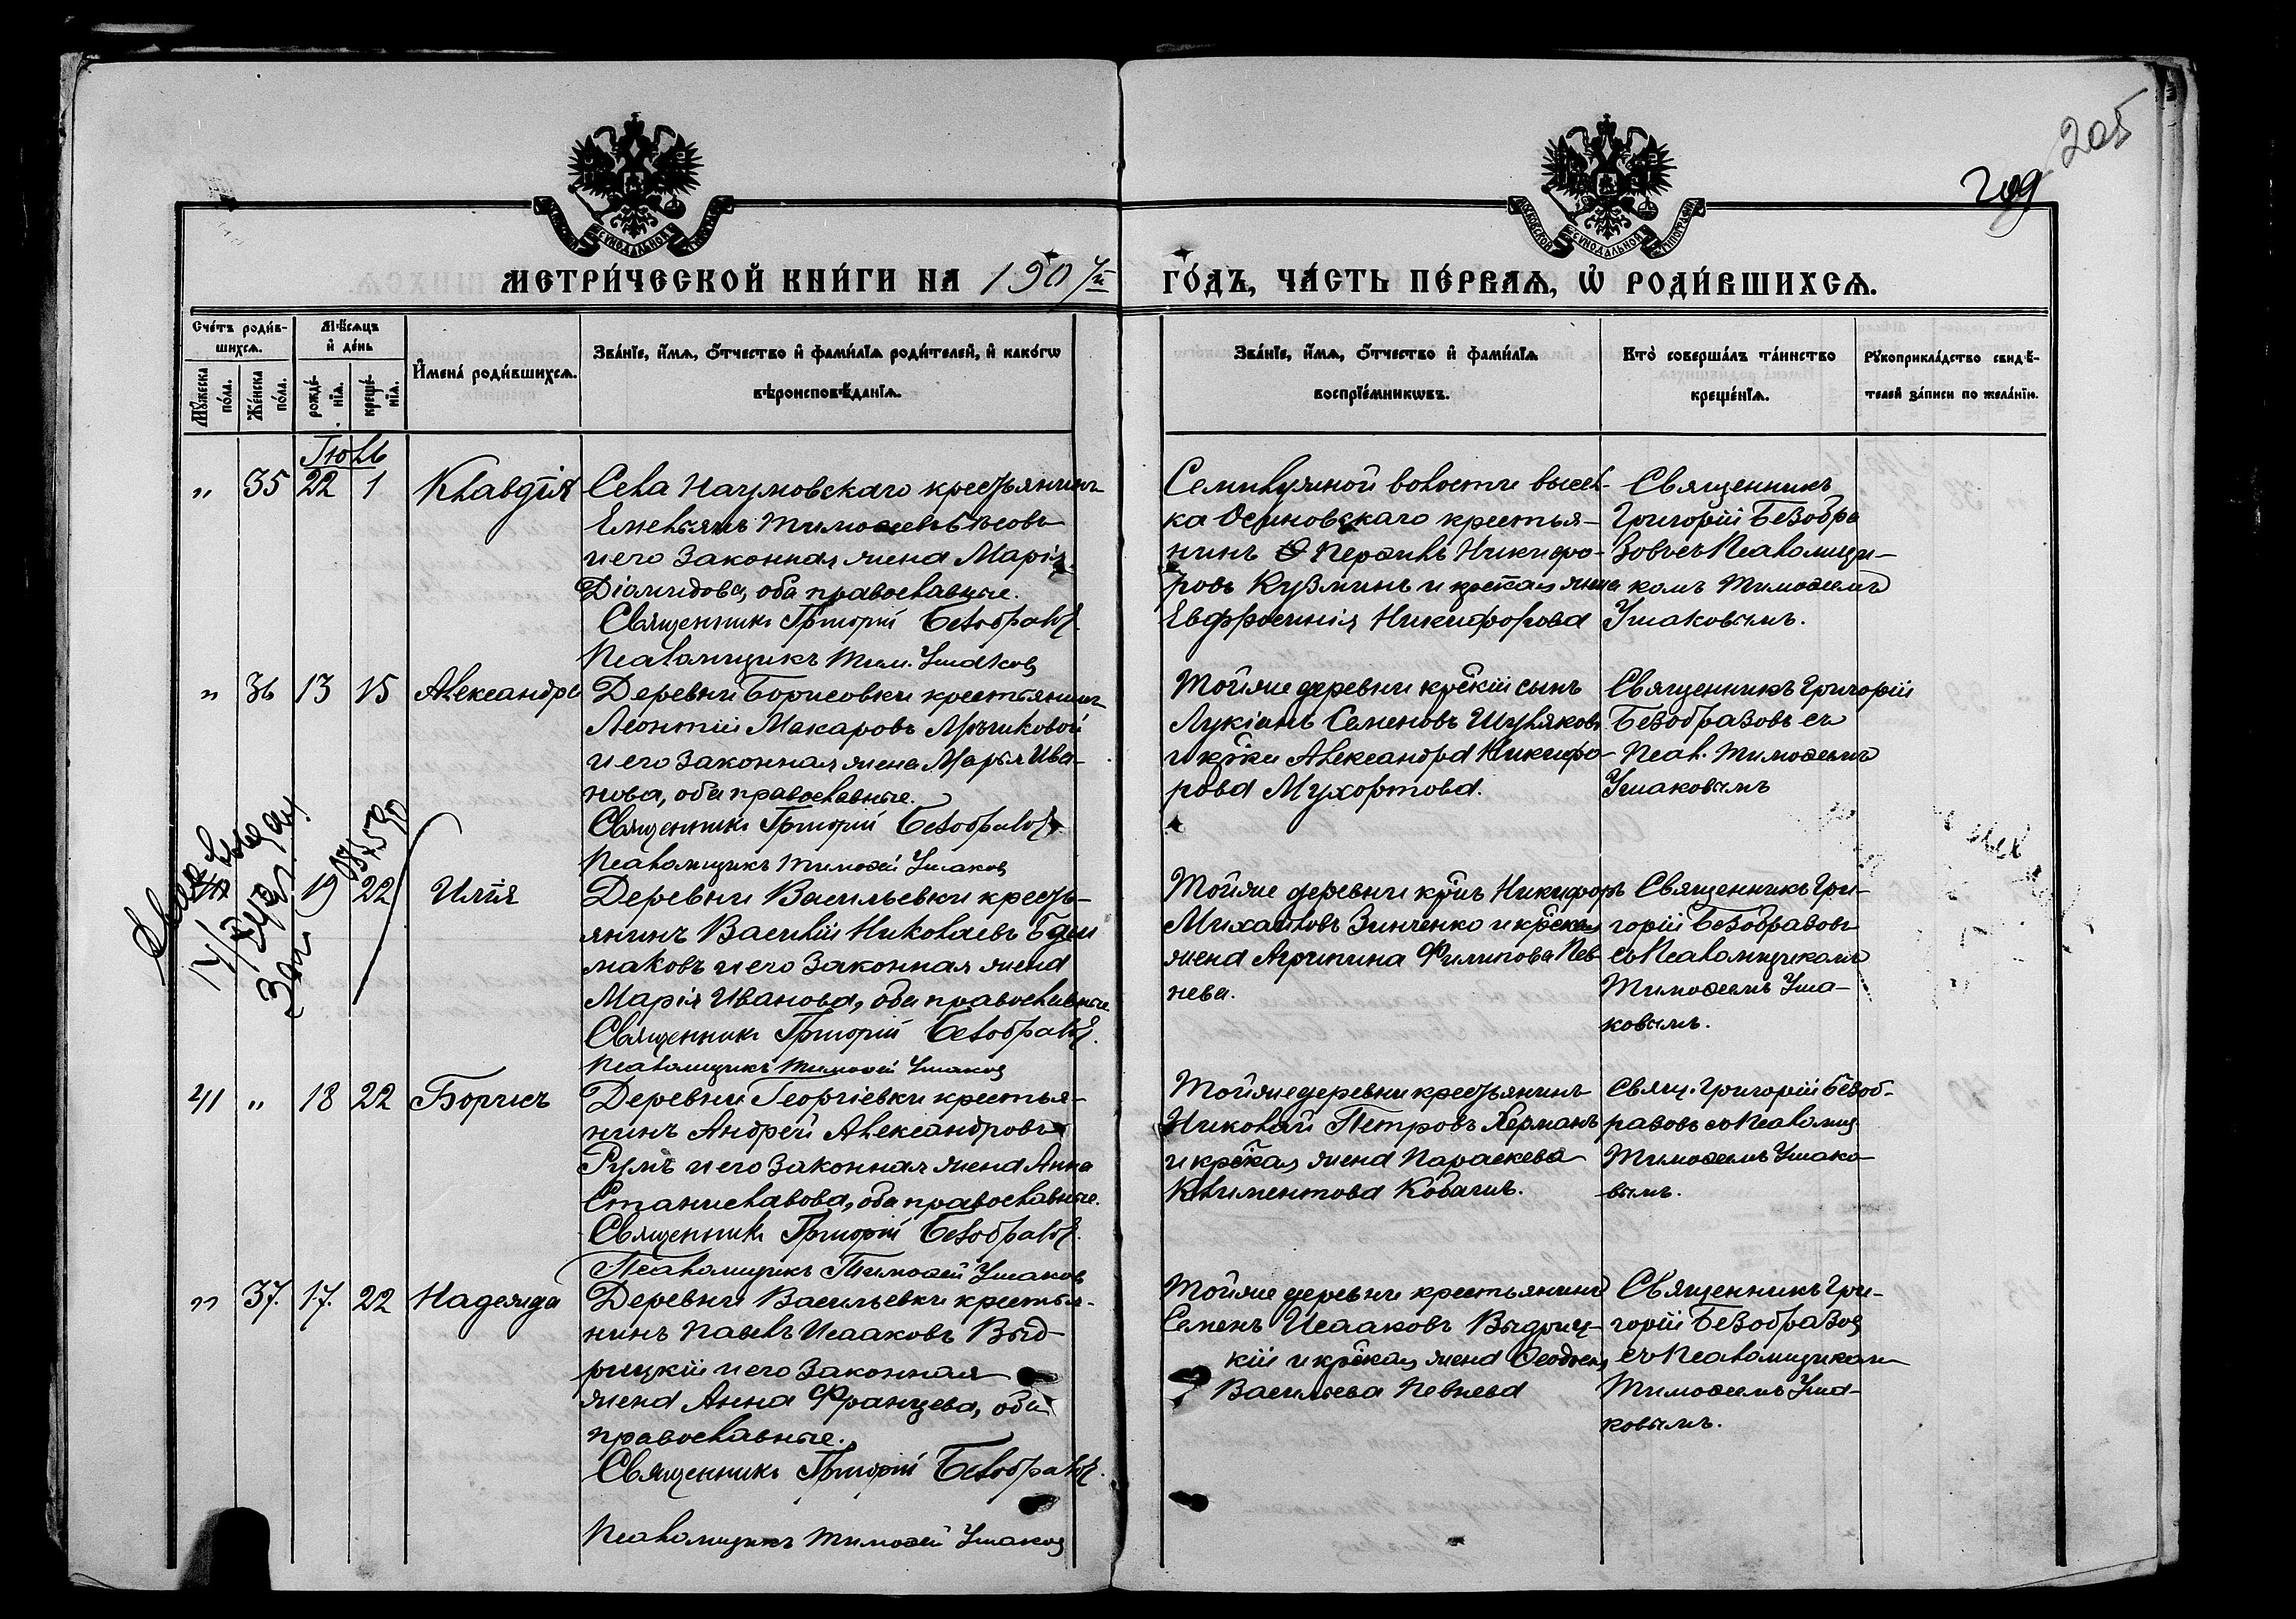 205
209
МОСКОВСКОЙ СѴНОДАЛЬНОЙ ТИПОГРАФІИ
МОСКОВСКОЙ СѴНОДАЛЬНОЙ ТИПОГРАФІИ
МЕТРИ́ЧЕСКОЙ КНИ́ГИ НА 1907й ГО́ДЪ, ЧА́СТЬ ПЕ́РВАѦ, Ѡ РОДИ́ВШИХСѦ.
Сче́тъ роди́в-
шихсѧ.
Мѣ́сѧцъ
и҆ де́нь
Мꙋ́жеска по́ла.
Же́нска по́ла.
рожде́-
нїѧ.
креще́-
нїѧ.
И҆мена̀ роди́вшихсѧ.
Зва́нїе, и҆́мѧ, ѻ҆́тчество и҆ фами́лїѧ роди́телей, и҆ како́гѡ
вѣроисповѣ́данїѧ.
Зва́нїе, и҆́мѧ, ѻ҆́тчество и҆ фами́лїѧ
воспрїе́мникѡвъ.
Кто̀ соверша́лъ та́инство
креще́нїѧ.
Рꙋкоприкла́дство свидѣ́-
телей за́писи по жела́нїю.
Іюль
" 35 22 1 Клавдія
Села Наумовскаго крестьянинъ
Емельянъ Тимоѳеевъ
и его законная жена Марія
Діамидова, оба православные.
Священникъ Григорій Безобразовъ
Псаломщикъ Тим. Ушаковъ
Семилужной волости высел-
ка Осиновскаго крестья-
нинъ Перфилъ Никифо-
ровъ Кузминъ и крест̃ая жена
Евфросинія Никифорова
Священникъ
Григорій Безобра
зовъ съ Псаломщи-
комъ Тимоѳеемъ
Ушаковымъ.
" 36 13 15 Александра
Деревни Борисовки крестьянинъ
Леонтій Макаровъ
и его законная жена Марія Ива-
нова, оба православные.
Священникъ Григорій Безобразовъ
Псаломщикъ Тимоѳей Ушаковъ
Той же деревни кр̃скій сынъ
Лукіанъ Семеновъ Шуляковъ
и кр̃ка Александра Никифо-
рова Мухортова.
Священникъ Григорій
Безобразовъ съ
Псал. Тимоѳеемъ
Ушаковымъ
19 22 Илія
Деревни Васильевки кресть-
янинъ Василій Николаевъ
маковъ и его законная жена
Марія Иванова, оба православные
Священникъ Григорій Безобразовъ.
Псаломщикъ Тимоѳей Ушаковъ
Той же деревни кр̃нъ Никифоръ
Михайловъ Зинченко и кр̃ская
жена Агрипина Филипова Пев-
нева.
Священникъ Гри-
горій Безобразовъ
съ Псаломщикомъ
Тимоѳеемъ Уша-
ковымъ.
41 " 18 22 Борисъ
Деревни Георгіевки крестья-
нинъ Андрей Александровъ
Румъ и его законная жена Анна
Станиславова, оба православные.
Священникъ Григорій Безобразовъ.
Псаломщикъ Тимоѳей Ушаковъ
Той же деревни крестьянинъ
Николай Петровъ Херманъ
и кр̃ская жена Параскева
Климентова Ковачиъ.
Свящ. Григорій Безоб-
разовъ съ Псаломщ
Тимоѳеемъ Ушако-
вымъ.
" 37. 17. 22 Надежда
Деревни Васильевки крестья-
нинъ Павелъ Исааковъ Выд-
рицкій и его законная
жена Анна Францева, оба
православные.
Священникъ Григорій Безобразовъ.
Псаломщикъ Тимоѳей Ушаковъ
Той же деревни крестьянинъ
Семенъ Исааковъ Выдриц-
кій и кр̃ская жена
Васильева Певнева
Священникъ Гри-
горій Безобразовъ
съ Псаломщикомъ
Тимоѳеемъ Уша-
ковымъ.